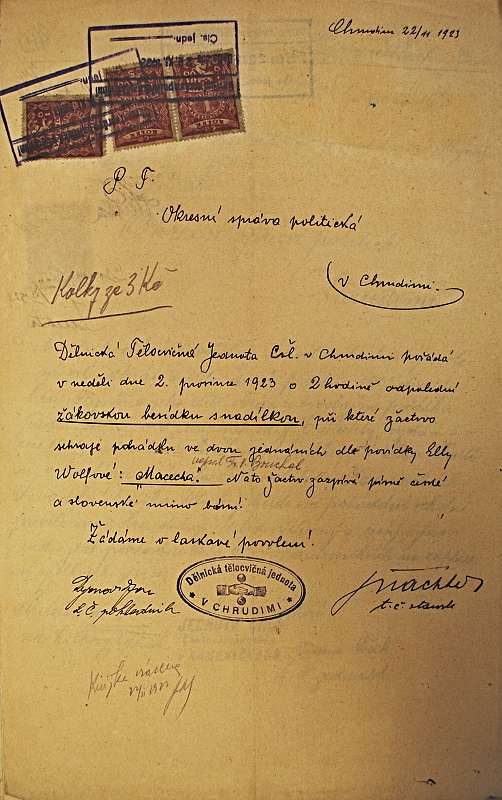 Chrudim 22/11 1923
Čís. jedn.
P. T.
Okresní správa politická
v Chrudimi.
Kolky za 3 Kč
Dělnická Tělocvičná Jednota Čsl. v Chrudimi pořádá
v neděli dne 2. prosince 1923 o 2 hodině odpolední
žákovskou besídku s nadílkou, při které žactvo
sehraje pohádku ve dvou jednáních dle povídky Elly
napsal
Wolfové: „Macecha. Na to žactvo zazpívá písně české
a slovenské mimo básní.
Žádáme o laskavé povolení!
Dělnická tělocvičná jednota
V CHRUDIMI
t. č.
t. č. starosta